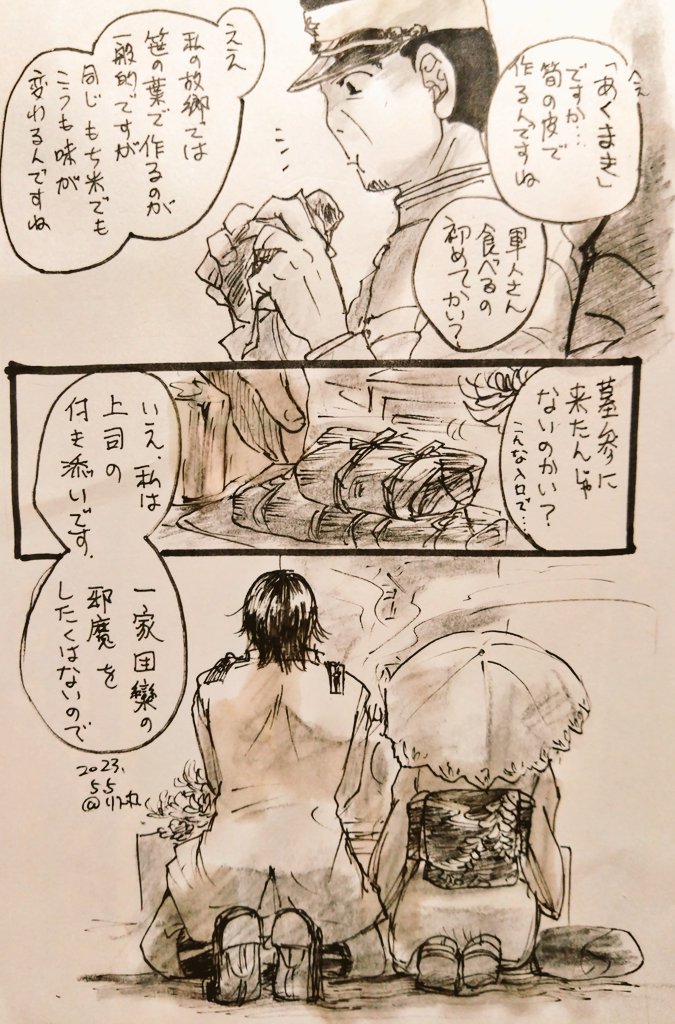 へぇ
「あくまき」
ですか…
筍の皮で
作るんですね
ええ
私の故郷では
笹の葉で作るのが
一般的ですが
同じもち米でも
こうも味が
変わるんですね
軍人さん
食べるの
初めてかい?
墓参に
来たんじゃ
ないのかい?
こんな入口で…
いえ、私は
上司の
付き添いです。
一家団欒の
邪魔を
したくはないので
2023.
5.5